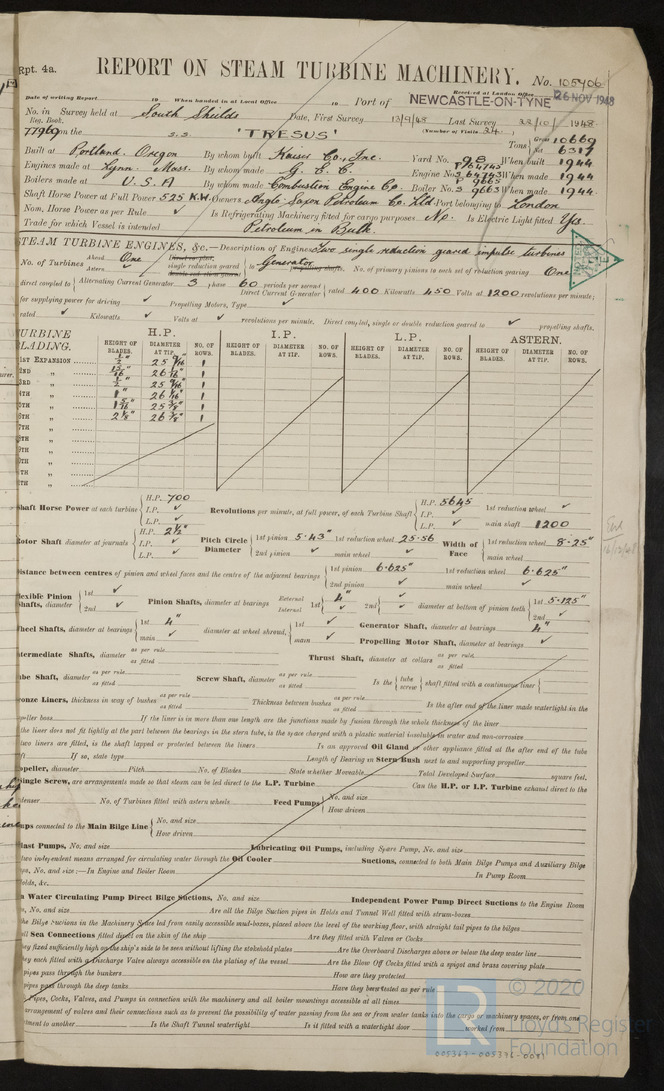 Rpt. 4a.
REPORT ON STEAM TURBINE MACHINERY. No. 105406
Received at London Office 26 NOV 1948
Date of writing Report 19 When handed in at Local Office 19 Port of NEWCASTLE-ON-TYNE
No. in Survey held at South Shields Date, First Survey 13/9/48 Last Survey 22/10/ 1948
Reg. Book. (Number of Visits 34)
77969 on the s.s. 'TRESUS' Tons Gross 10669 Net 6317
Built at Portland, Oregon By whom built Kaiser Co., Inc. Yard No. 98 When built 1944
Engines made at Lynn. Mass. By whom made G. E. C. Engine No. When made 1944
Boilers made at U. S. A By whom made Combustion Engine Co. Boiler No. When made 1944
Shaft Horse Power at Full Power 525 K.W. Owners Anglo Saxon Petroleum Co. Ltd Port belonging to London
Nom. Horse Power as per Rule ✓ Is Refrigerating Machinery fitted for cargo purposes No. Is Electric Light fitted Yes.
Trade for which Vessel is intended Petroleum in Bulk.
STEAM TURBINE ENGINES, &c.—Description of Engines Two single reduction geared impulse turbines
No. of Turbines Ahead One Astern single reduction geared to Generator propelling shafts. No. of primary pinions to each set of reduction gearing One
direct coupled to Alternating Current Generator 3 phase 60 periods per second Direct Current Generator rated 400 Kilowatts 450 Volts at 1200 revolutions per minute;
for supplying power for driving ✓ Propelling Motors, Type ✓
rated ✓ Kilowatts ✓ Volts at ✓ revolutions per minute. Direct coupled, single or double reduction geared to ✓ propelling shafts.
TURBINE BLADING. H.P. I.P. L.P. ASTERN.
HEIGHT OF BLADES. DIAMETER AT TIP. NO. OF ROWS. HEIGHT OF BLADES. DIAMETER AT TIP. NO. OF ROWS. HEIGHT OF BLADES. DIAMETER AT TIP. NO. OF ROWS. HEIGHT OF BLADES. DIAMETER AT TIP. NO. OF ROWS.
1ST EXPANSION 1
2ND " 1
3RD " 1
4TH " 1" 1
5TH " 25 3/8" 1
6TH " 2 1/8" 26 3/8" 1
7TH "
8TH "
Shaft Horse Power at each turbine H.P. 700 I.P. ✓ L.P. ✓ Revolutions per minute, at full power, of each Turbine Shaft H.P. 5645 I.P. ✓ L.P. ✓ 1st reduction wheel ✓ main shaft 1200
Rotor Shaft diameter at journals H.P. 2½" I.P. ✓ L.P. ✓ Pitch Circle Diameter 1st pinion 5.43" 2nd pinion ✓ 1st reduction wheel 25.56 main wheel ✓ Width of Face 1st reduction wheel 8.25" main wheel
Distance between centres of pinion and wheel faces and the centre of the adjacent bearings 1st pinion 6.625" 2nd pinion ✓ 1st reduction wheel 6.625" main wheel ✓
Flexible Pinion Shafts, diameter 1st ✓ 2nd ✓ Pinion Shafts, diameter at bearings External Internal 1st 4" 2nd ✓ diameter at bottom of pinion teeth 1st 5.125" 2nd ✓
Wheel Shafts, diameter at bearings 1st 4" main ✓ diameter at wheel shroud, 1st ✓ main ✓ Generator Shaft, diameter at bearings 4"
Propelling Motor Shaft, diameter at bearings ✓
Intermediate Shafts, diameter as per rule as fitted Thrust Shaft, diameter at collars as per rule as fitted
Tube Shaft, diameter as per rule as fitted Screw Shaft, diameter as per rule as fitted Is the tube screw shaft fitted with a continuous liner
Bronze Liners, thickness in way of bushes as per rule as fitted Thickness between bushes as per rule as fitted Is the after end of the liner made watertight in the
propeller boss If the liner is in more than one length are the junctions made by fusion through the whole thickness of the liner
the liner does not fit tightly at the part between the bearings in the stern tube, is the space charged with a plastic material insoluble in water and non-corrosive
two liners are fitted, is the shaft lapped or protected between the liners Is an approved Oil Gland or other appliance fitted at the after end of the tube
If so, state type Length of Bearing in Stern Bush next to and supporting propeller
Propeller, diameter Pitch No. of Blades State whether Moveable Total Developed Surface square feet.
Single Screw, are arrangements made so that steam can be led direct to the L.P. Turbine Can the H.P. or I.P. Turbine exhaust direct to the
No. of Turbines fitted with astern wheels Feed Pumps No. and size How driven
Pumps connected to the Main Bilge Line No. and size How driven
Ballast Pumps, No. and size Lubricating Oil Pumps, including Spare Pump, No. and size
two independent means arranged for circulating water through the Oil Cooler Suctions, connected to both Main Bilge Pumps and Auxiliary Bilge
No. and size:—In Engine and Boiler Room In Pump Room
Holds, &c.
Water Circulating Pump Direct Bilge Suctions, No. and size Independent Power Pump Direct Suctions to the Engine Room
No. and size Are all the Bilge Suction pipes in Holds and Tunnel Well fitted with strum-boxes
the Bilge Suctions in the Machinery Space led from easily accessible mud-boxes, placed above the level of the working floor, with straight tail pipes to the bilges
all Sea Connections fitted direct on the skin of the ship Are they fitted with Valves or Cocks
they fixed sufficiently high on the ship's side to be seen without lifting the stokehold plates Are the Overboard Discharges above or below the deep water line
they each fitted with a Discharge Valve always accessible on the plating of the vessel Are the Blow Off Cocks fitted with a spigot and brass covering plate
pipes pass through the bunkers How are they protected
pipes pass through the deep tanks Have they been tested as per rule
Pipes, Cocks, Valves, and Pumps in connection with the machinery and all boiler mountings accessible at all times
arrangement of valves and their connections such as to prevent the possibility of water passing from the sea or from water tanks into the cargo or machinery spaces, or from one
compartment to another Is the Shaft Tunnel watertight Is it fitted with a watertight door worked from
© 2020
LR
Lloyd's Register
Foundation